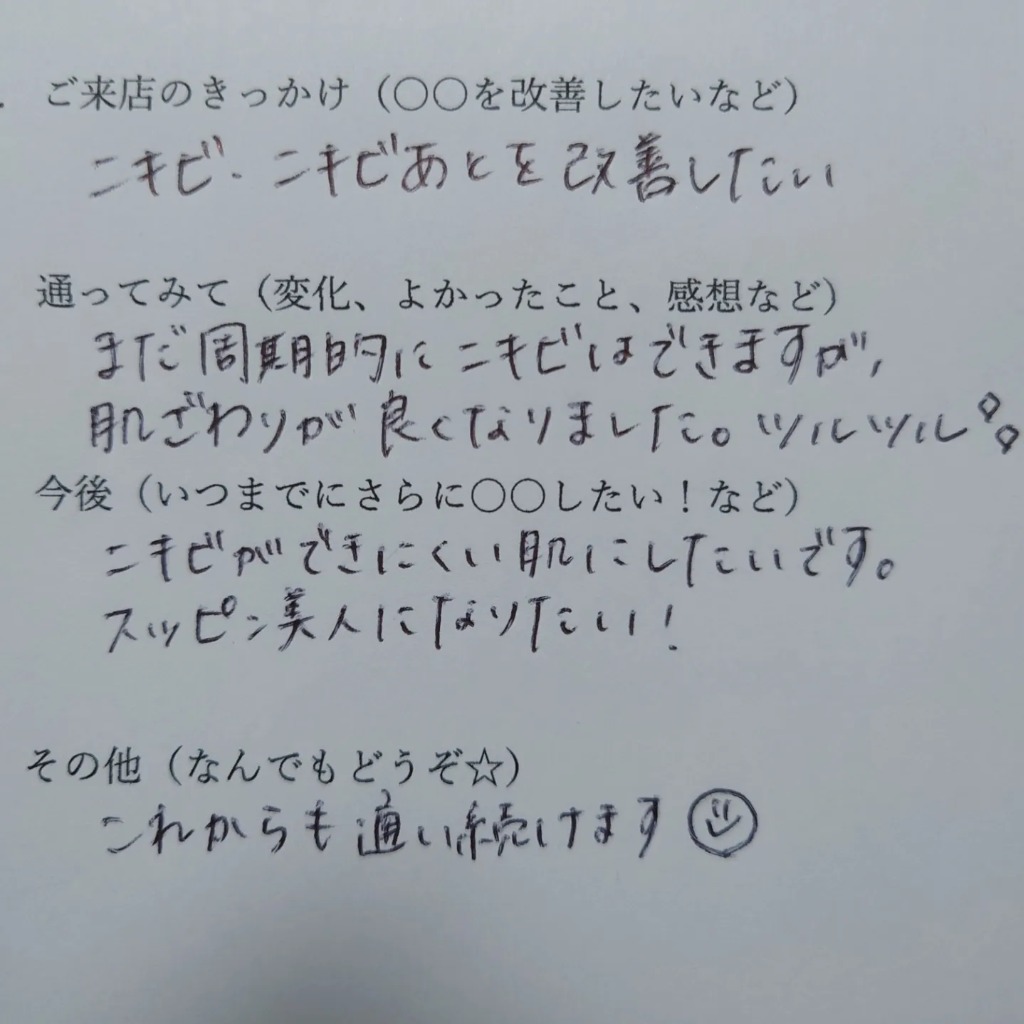 ご来店のきっかけ（〇〇を改善したいなど）
ニキビ・ニキビあとを改善したい
通ってみて（変化、よかったこと、感想など）
まだ周期的にニキビはできますが、
肌ざわりが良くなりました。ツルツル
今後（いつまでにさらに〇〇したい！など）
ニキビができにくい肌にしたいです。
スッピン美人になりたい！
その他（なんでもどうぞ☆）
これからも通い続けます